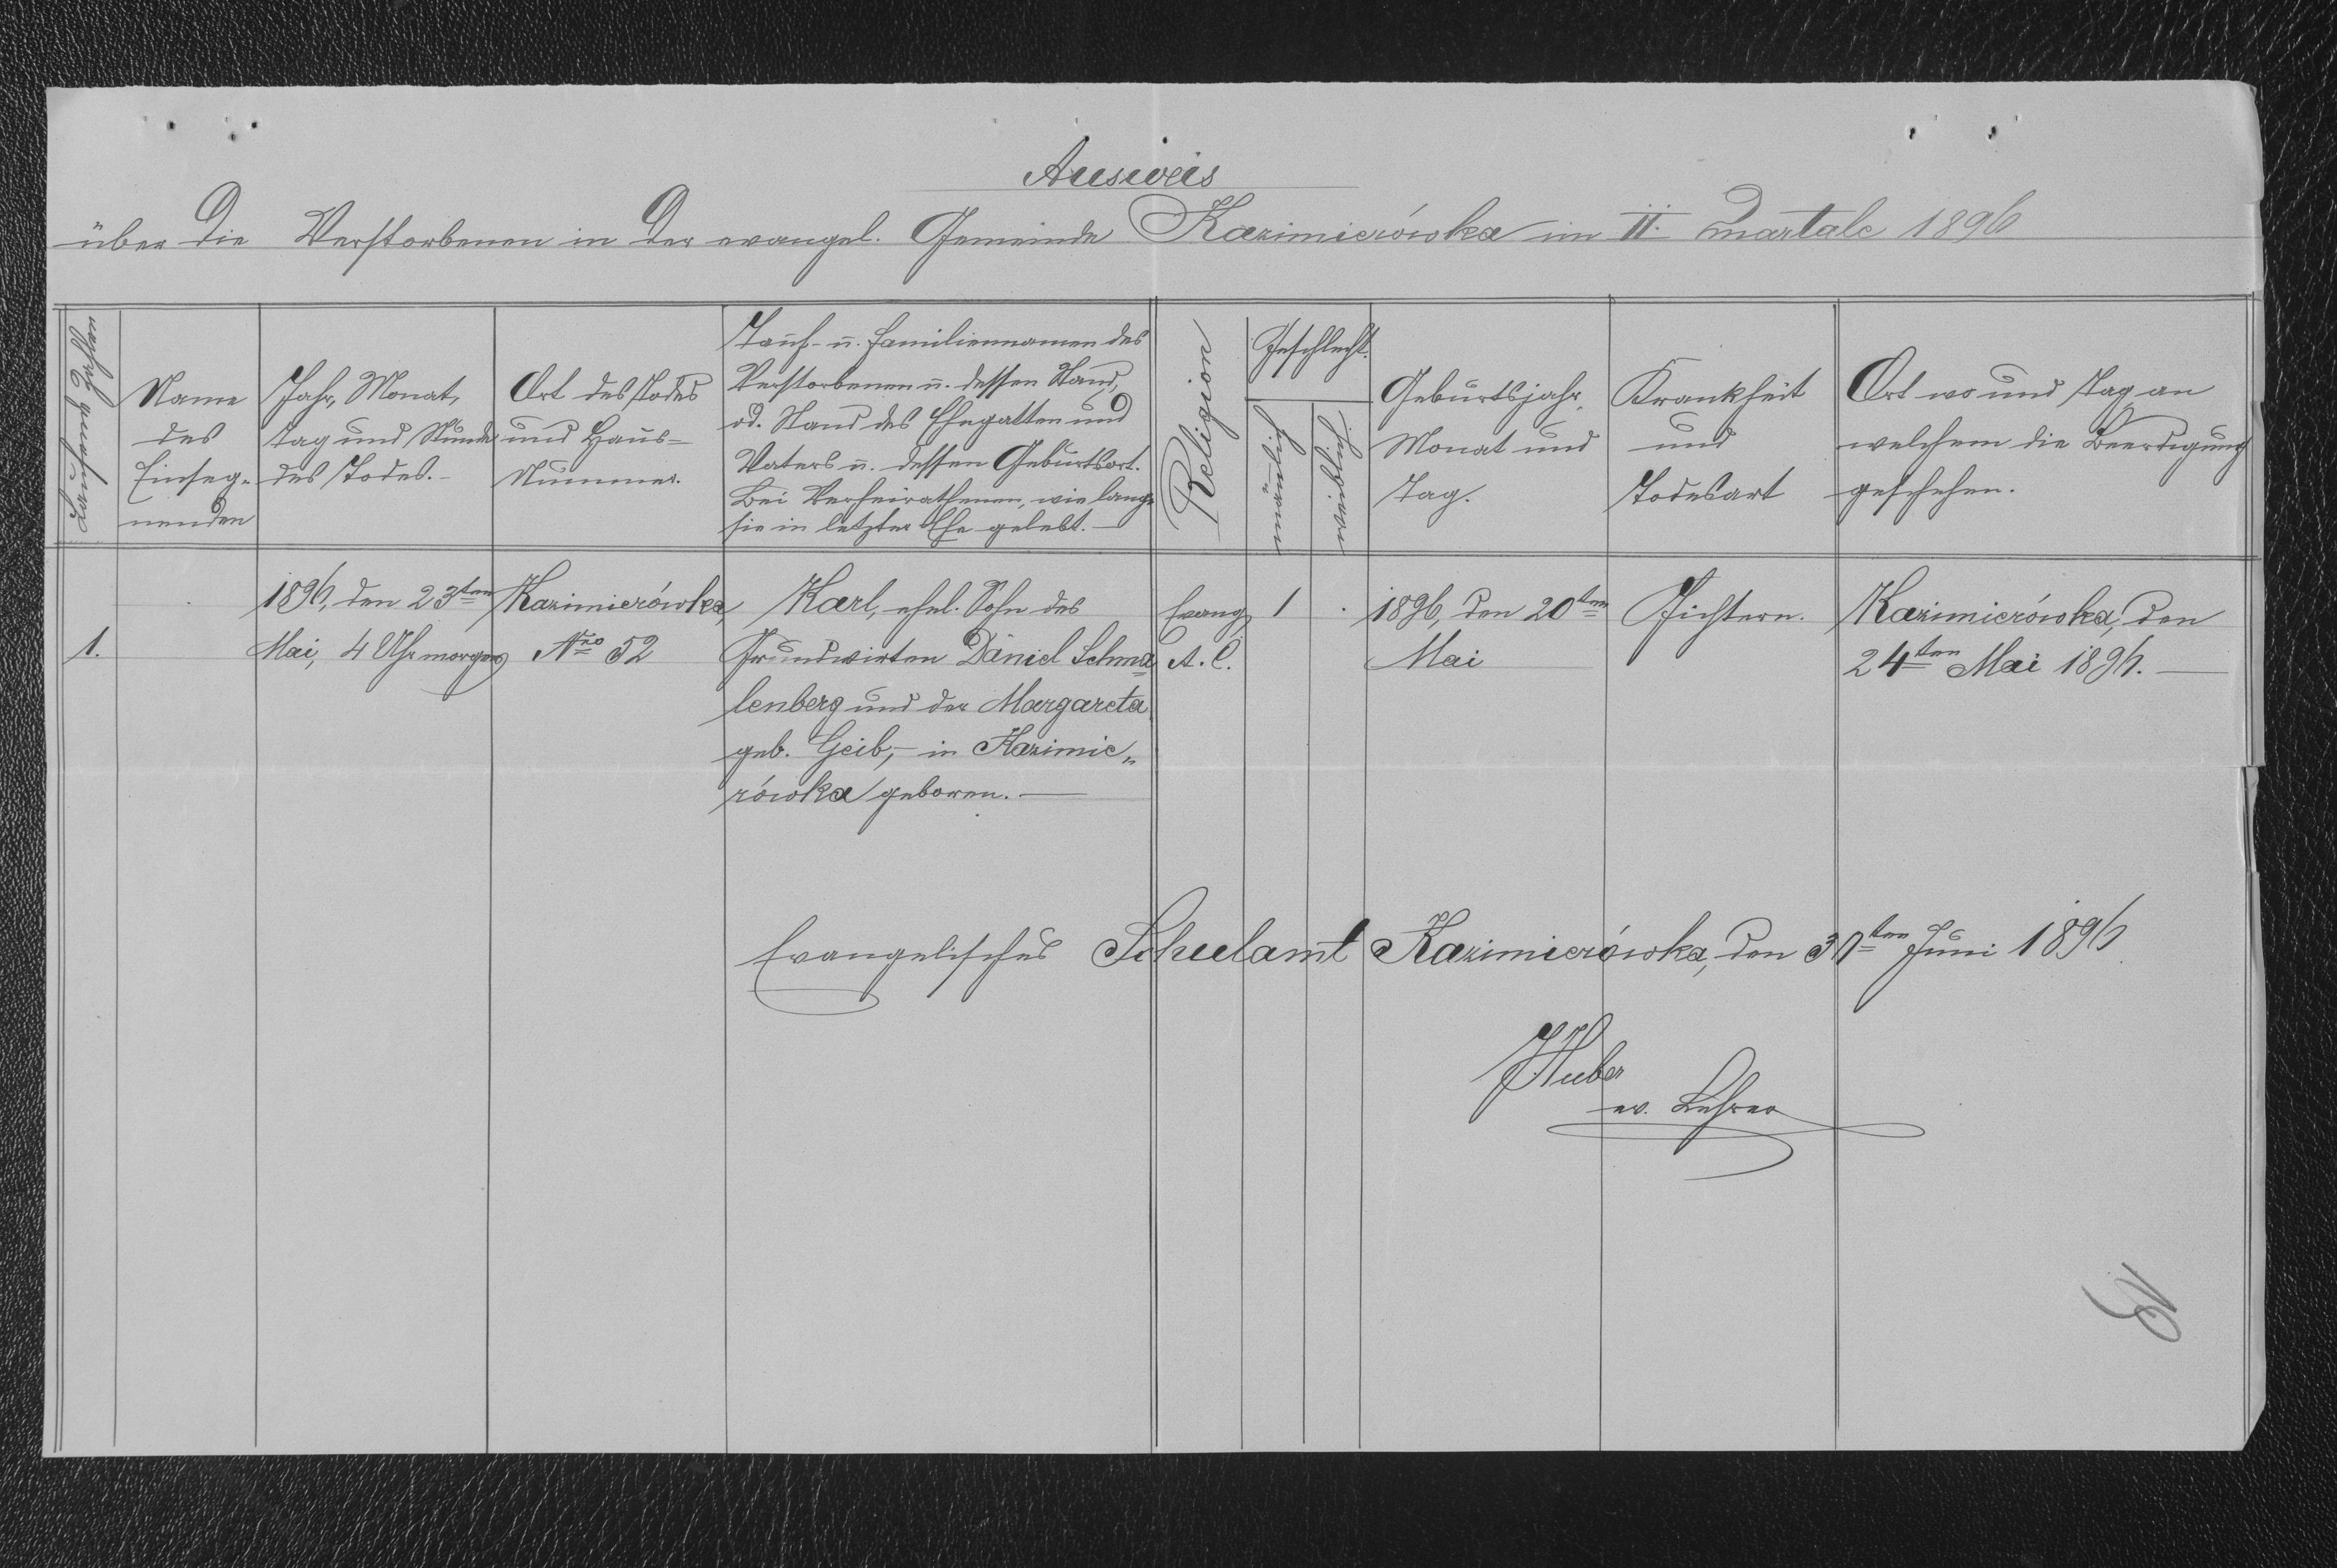 Ausweis
über die Verstorbenen in der evangel. Gemeinde Kazimierówka im II. Quartale 1896
Laufende Zahlen
Name
des
Einseg-
nenden
Jahr, Monat,
Tag und Stunde
des Todes.-
Ort des Todes
und Haus=
Nummer.
Tauf- u. Familiennamen des
Verstorbenen u. dessen Stand,
od. Stand des Ehegatten und
Vaters u. dessen Geburtsort.
Bei Verheiratheten, wie lange
sie in letzter Ehe gelebt.-
Religion
Geschlecht.
männlich
weiblich
Geburtsjahr,
Monat und
Tag.
Krankheit
und
Todesart
Ort wo und Tag an
welchem die Beerdigung
geschehen.
1.
1896, den 23ten
Mai, 4 Uhr morgens
Kazimierówka,
Nro 52
Karl, ehel. Sohn des
Grundwirten Daniel Schma=
lenberg und der Margareta
geb. Geib,- in Kazimie„
rówka geboren.-
Evang.
A. C.
1
.
1896, den 20ten
Mai
Kazimierówka, den
24ten Mai 1896.-
Evangelisches Schulamt Kazimierówka, den 30ten Juni 1896
JHuber
ev. Lehrer